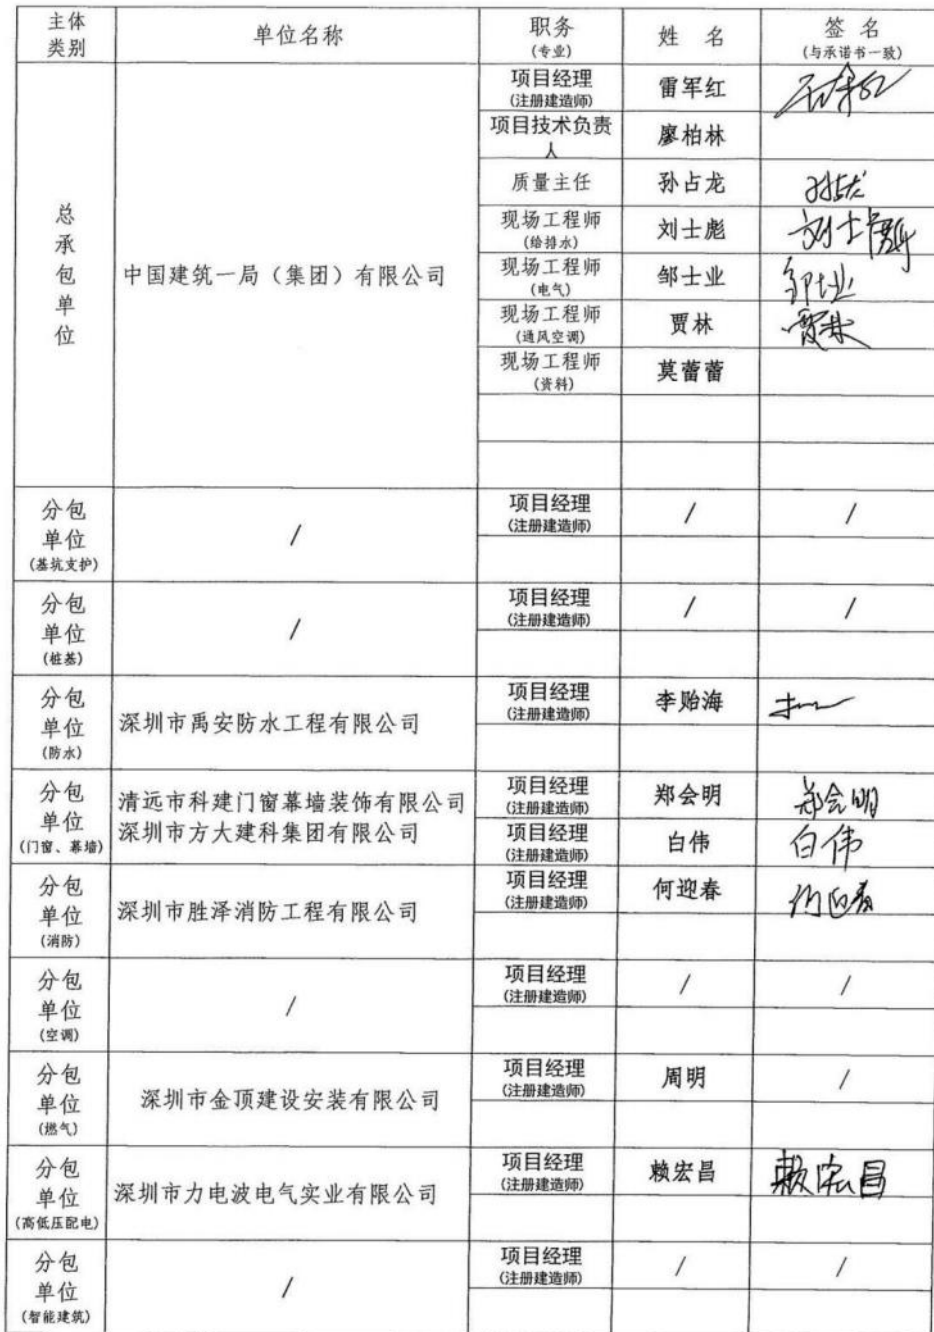 主体 类别 单位名称 职务 (专业) 姓 名 签 名 (与承诺书一致)
总承包单位 中国建筑一局（集团）有限公司
项目经理 (注册建造师) 雷军红
项目技术负责人 廖柏林
质量主任 孙占龙 孙占龙
现场工程师 (给排水) 刘士彪 刘士彪
现场工程师 (电气) 邹士业 邹士业
现场工程师 (通风空调) 贾林 贾林
现场工程师 (资料) 莫蕾蕾
分包单位 (基坑支护) / 项目经理 (注册建造师) / /
分包单位 (桩基) / 项目经理 (注册建造师) / /
分包单位 (防水) 深圳市禹安防水工程有限公司 项目经理 (注册建造师) 李贻海
分包单位 (门窗、幕墙) 清远市科建门窗幕墙装饰有限公司 项目经理 (注册建造师) 郑会明 郑会明
深圳市方大建科集团有限公司 项目经理 (注册建造师) 白伟 白伟
分包单位 (消防) 深圳市胜泽消防工程有限公司 项目经理 (注册建造师) 何迎春 何迎春
分包单位 (空调) / 项目经理 (注册建造师) / /
分包单位 (燃气) 深圳市金顶建设安装有限公司 项目经理 (注册建造师) 周明 /
分包单位 (高低压配电) 深圳市力电波电气实业有限公司 项目经理 (注册建造师) 赖宏昌 赖宏昌
分包单位 (智能建筑) / 项目经理 (注册建造师) / /